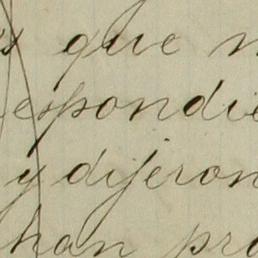 que
espondie
y dijeron
han pro